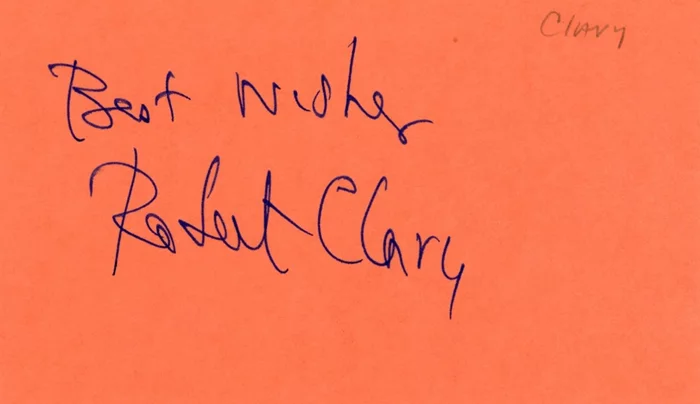 Clary
Best Wishes
Robert Clary